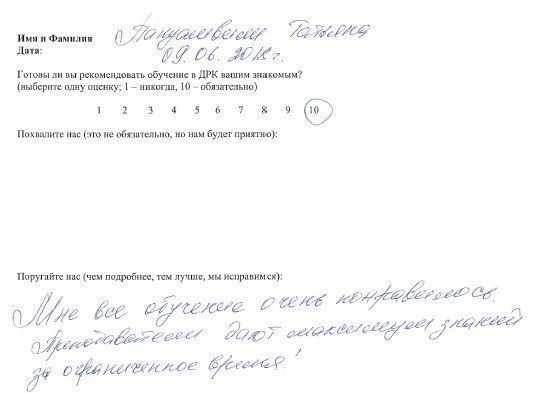 Имя и Фамилия Татьяна
Дата: 09.06.2018г.
Готовы ли вы рекомендовать обучение в ДРК вашим знакомым?
(выберите одну оценку; 1 – никогда, 10 – обязательно)
1 2 3 4 5 6 7 8 9 10
Похвалите нас (это не обязательно, но нам будет приятно):
Поругайте нас (чем подробнее, тем лучше, мы исправимся):
Мне все обучение очень понравилось.
Преподаватели дают максимум знаний
за ограниченное время!